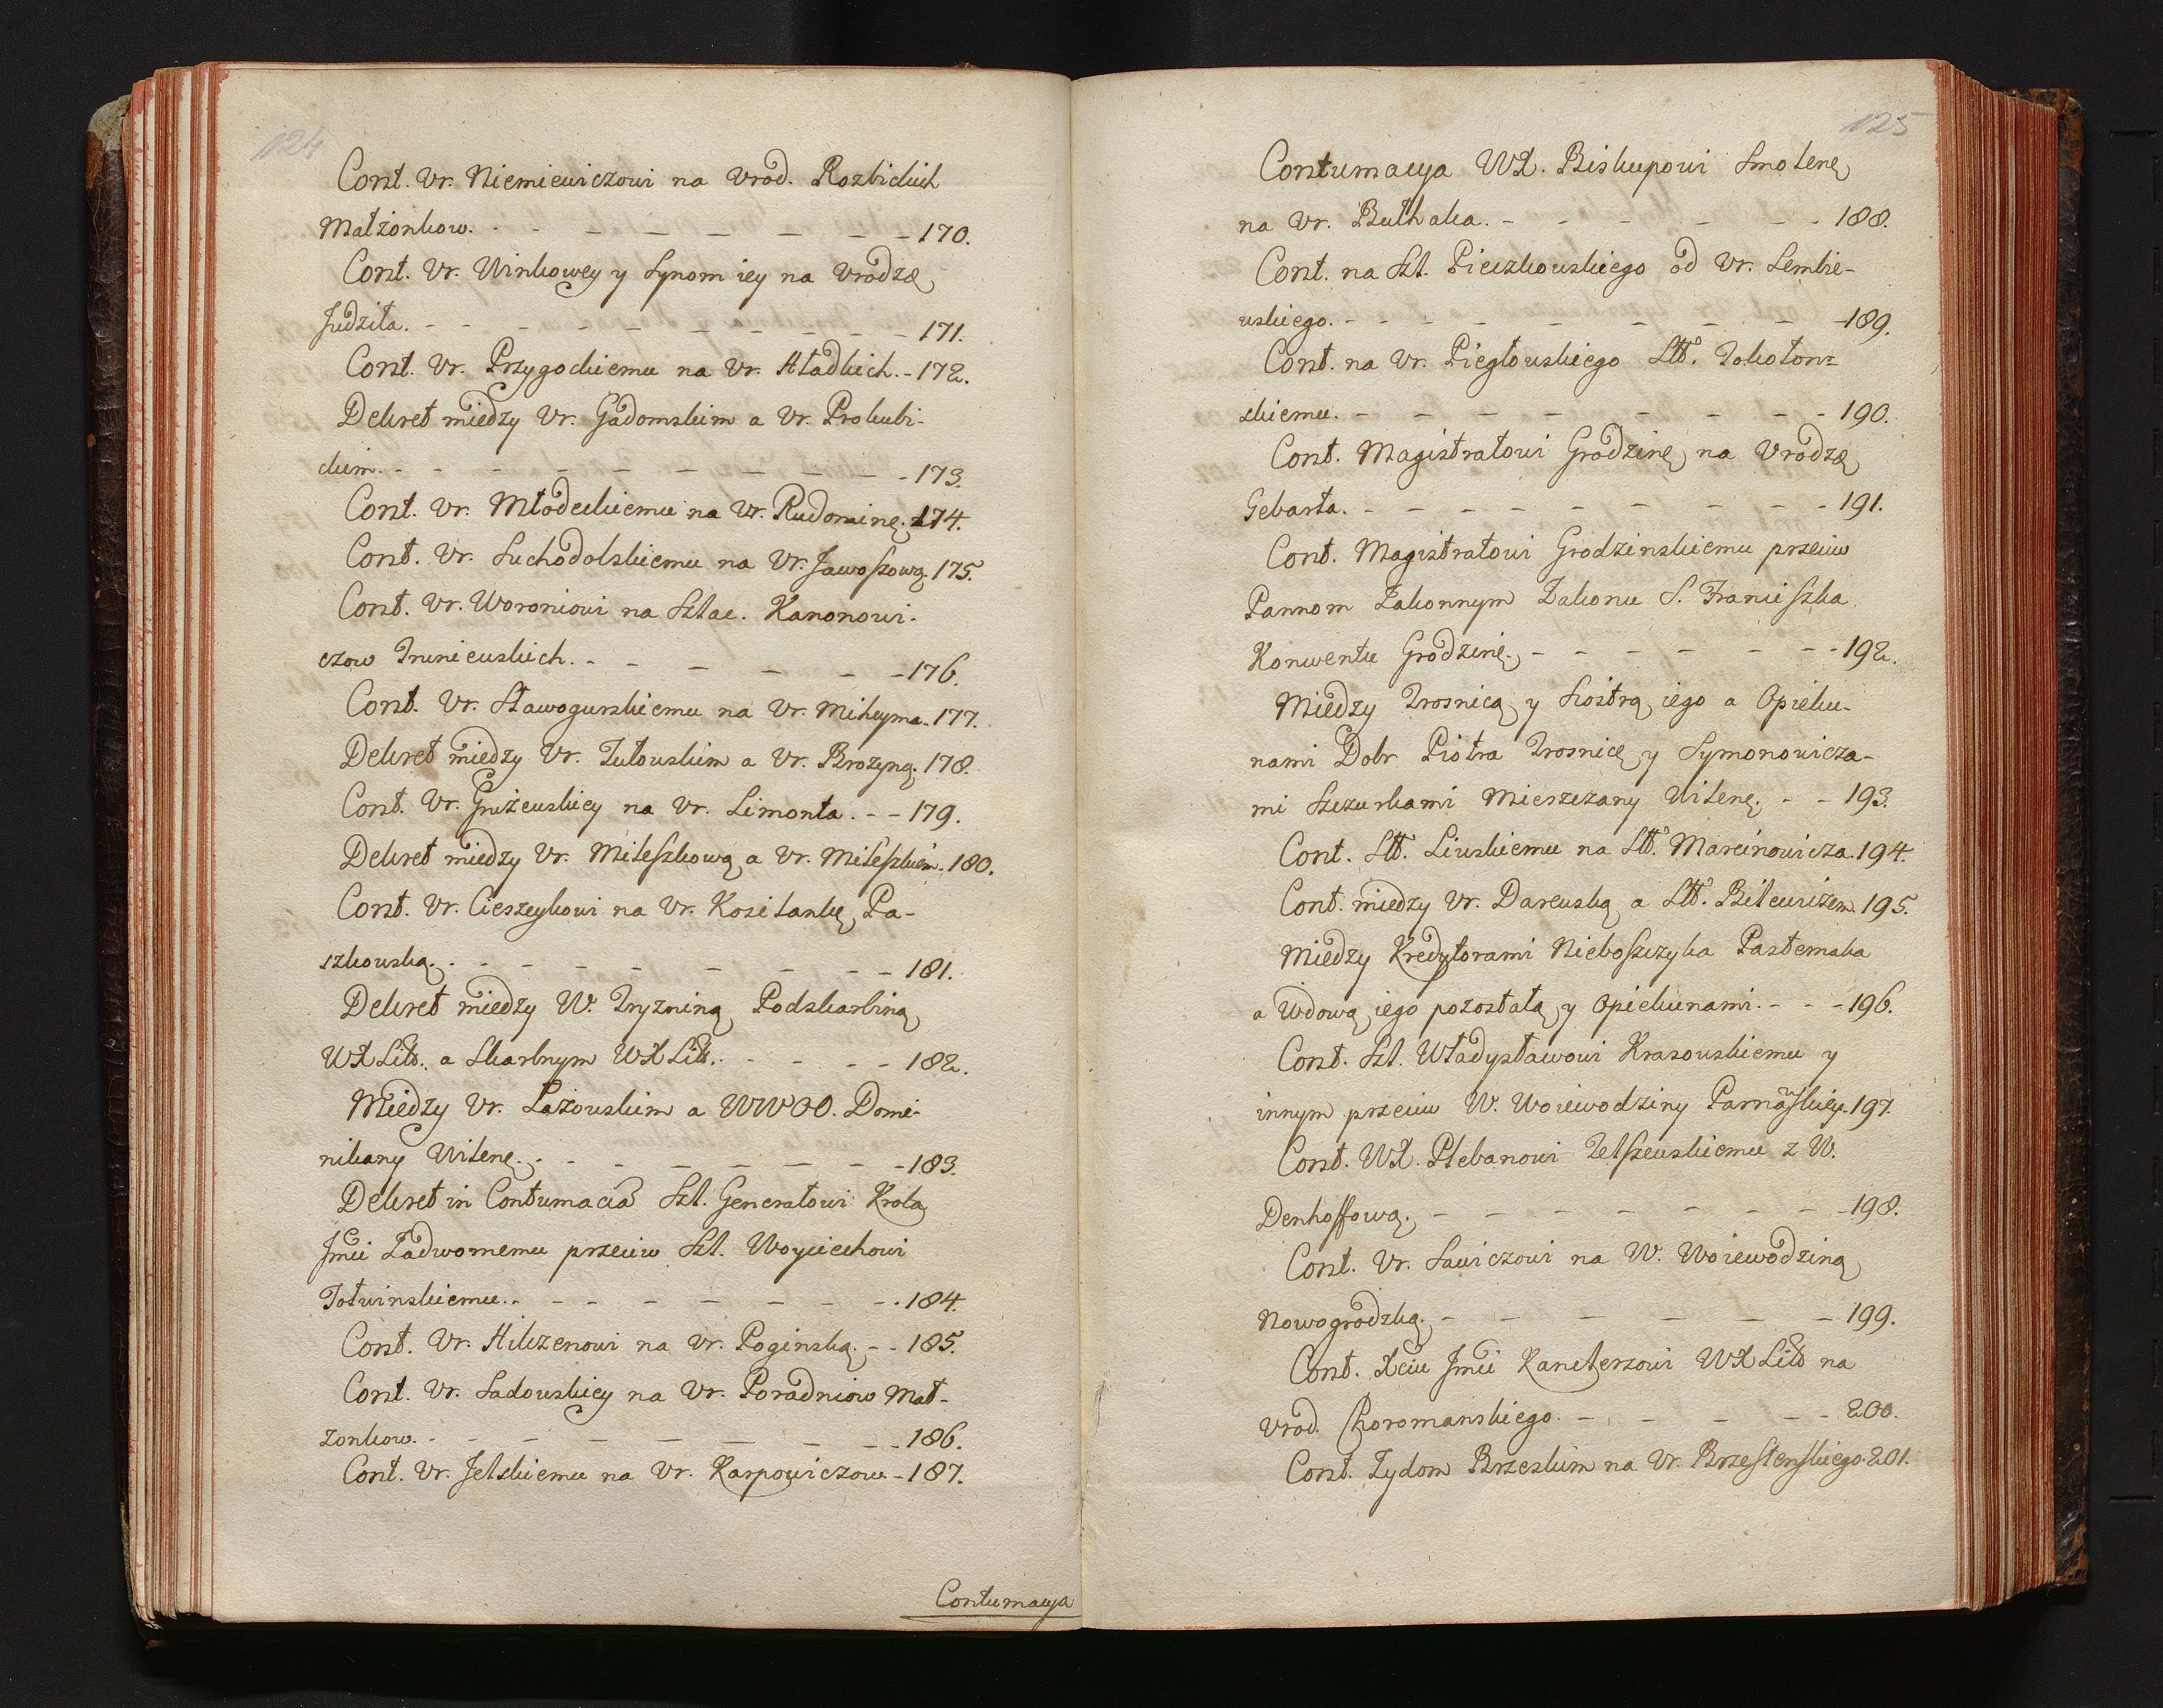 124
Cont. Ur. Niemiewiczowi na Urod. Rozbickich
Małżonkow. - - - - - - - - 170.
Cont. Ur. Winkowey y Synom iey na Urodzę
Judziła. - - - - - - - - - 171.
Cont. Ur. Przygockiemu na Ur. Hładkich. - 172.
Dekret między Ur. Gadomskim a Ur. Prokubi-
ckim. - - - - - - - - - 173.
Cont. Ur. Młodeckiemu na Ur. Rudominę. 174.
Cont. Ur. Suchodolskiemu na Ur. Jawoszową. 175.
Cont. Ur. Woroniowi na Szlac. Kanonowi-
czow Iwniewskich. - - - - - 176.
Cont. Ur. Sławogurskiemu na Ur. Mikuyma. 177.
Dekret między Ur. Tutowskim a Ur. Brozyną. 178.
Cont. Ur. Gniżewskiey na Ur. Limonta. - - 179.
Dekret między Ur. Mileszkową a Ur. Mileszkiem. 180.
Cont. Ur. Cieszeykowi na Ur. Kosilankę Pa-
szkowską. - - - - - - - - 181.
Dekret między W. Tryzniną Podskarbiną
WXLitt. a Skarbnym WXLitt. - - - - 182.
Między Ur. Łazowskim a WWOO. Domi-
nikany Wilenę. - - - - - - - 183.
Dekret in Contumaciã Szl. Generałowi Krola
Jmći Zadwornemu przeciw Szl. Woyciechowi
Tołwinskiemu. - - - - - - - 184.
Cont. Ur. Hilzenowi na Ur. Poginską. - - 185.
Cont. Ur. Sadowskiey na Ur. Poradniow Mał-
zonkow. - - - - - - - - 186.
Cont. Ur. Jelskiemu na Ur. Karpowiczow - 187.
Contumacya
125
Contumacya WX. Biskupowi Smolenę
na Ur. Bułhaka. - - - - - - 188.
Cont. na Szl. Pieczkowskiego od Ur. Sembie-
wskiego. - - - - - - - - - 189.
Cont. na Ur. Piegłowskiego Stt. Tokołon=
skiemu. - - - - - - - - 190.
Cont. Magistratowi Grodzinę na Urodzę
Gebarta. - - - - - - - - - 191.
Cont. Magistratowi Grodzinskiemu przeciw
Pannom Zakonnym Zakonu S. Franciszka
Konwentu Grodzinę. - - - - - - 192.
Między Trosnicą y Siostrą iego a Opieku-
nami Dobr Piotra Trosnicę y Symonowicza-
mi Szczurkami Mieszczany Wilenę. - - 193.
Cont. Stt. Liuskiemu na Stt. Marcinowicza. 194.
Cont. między Ur. Darewską a Stt. Bilewiczem. 195.
Między Kredytorami Nieboszczyka Pasternaka
a Wdową iego pozostałą y Opiekunami. - - - 196.
Cont. Szl. Władysławowi Krasowskiemu y
innym przeciw W. Woiewodziny Parnãskiey. 197.
Cont. WX. Plebanowi Zelszewskiemu z W.
Denhoffową. - - - - - - - 198.
Cont. Ur. Sawiczowi na W. Woiewodziną
Nowogrodzką. - - - - - - 199.
Cont. Xciu Jmći Kanclerzowi WXLitt na
Urod. Choromanskiego. - - - - - 200.
Cont. Zydom Brzeskim na Ur. Brzestenskiego. 201.